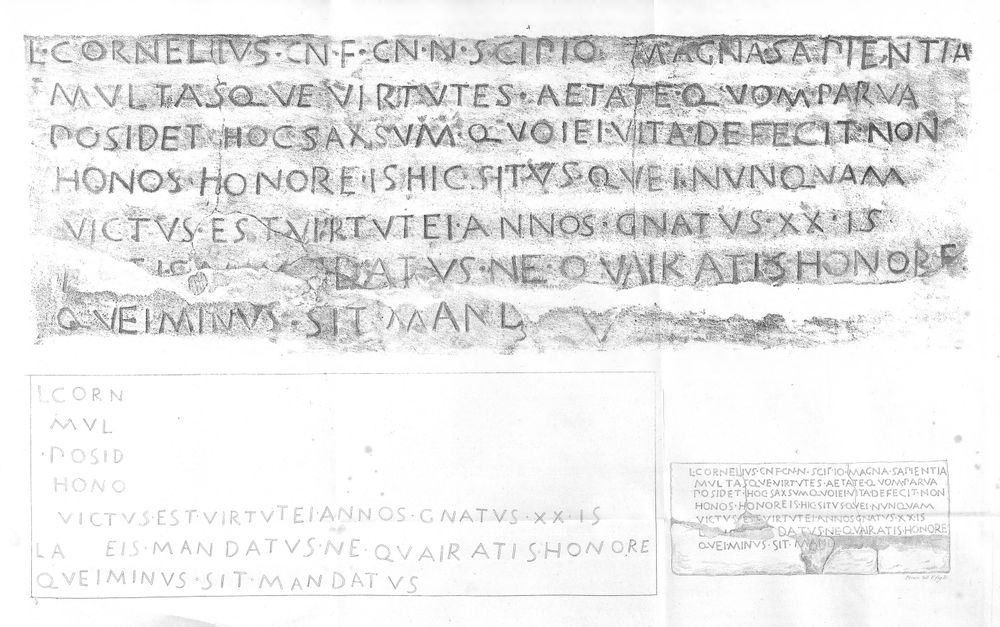 L·CORNELIVS·CN·F·CN·N·SCIPIO MAGNA SAPIENTIA
MVLTASQVE VIRTVTES·AETATE·QVOM PARVA
POSIDET·HOC SAXSVM·QVOIEI·VITA·DEFECIT·NON
HONOS·HONORE·IS HIC SITVS·QVEI·NVNQVAM
VICTVS·EST VIRTVTEI·ANNOS·GNATVS·XX·IS
L DATVS·NE·QVAIRATIS HONORE
QVEIMINVS·SIT MAND
L·CORN
MVL
·POSID
HONO
VICTVS·EST·VIRTVTEI·ANNOS·GNATVS·XX·IS
LA EIS·MANDATVS·NE·QVAIRATIS·HONORE
QVEIMINVS·SIT·MANDATVS
L·CORNELIVS·CN·F·CN·N·SCIPIO·MAGNA·SAPIENTIA
MVLTASQVE VIRTVTES·AETATE·QVOM PARVA
POSIDET·HOC SAXSVM·QVOIEI VITA DEFECIT·NON
HONOS·HONORE IS HIC SITVS QVEI·NVNQVAM
VICTVS EST VIRTVTEI ANNOS GNATVS·XX·IS
L DATVS·NE QVAIRATIS HONORE
QVEIMINVS·SIT·MAND